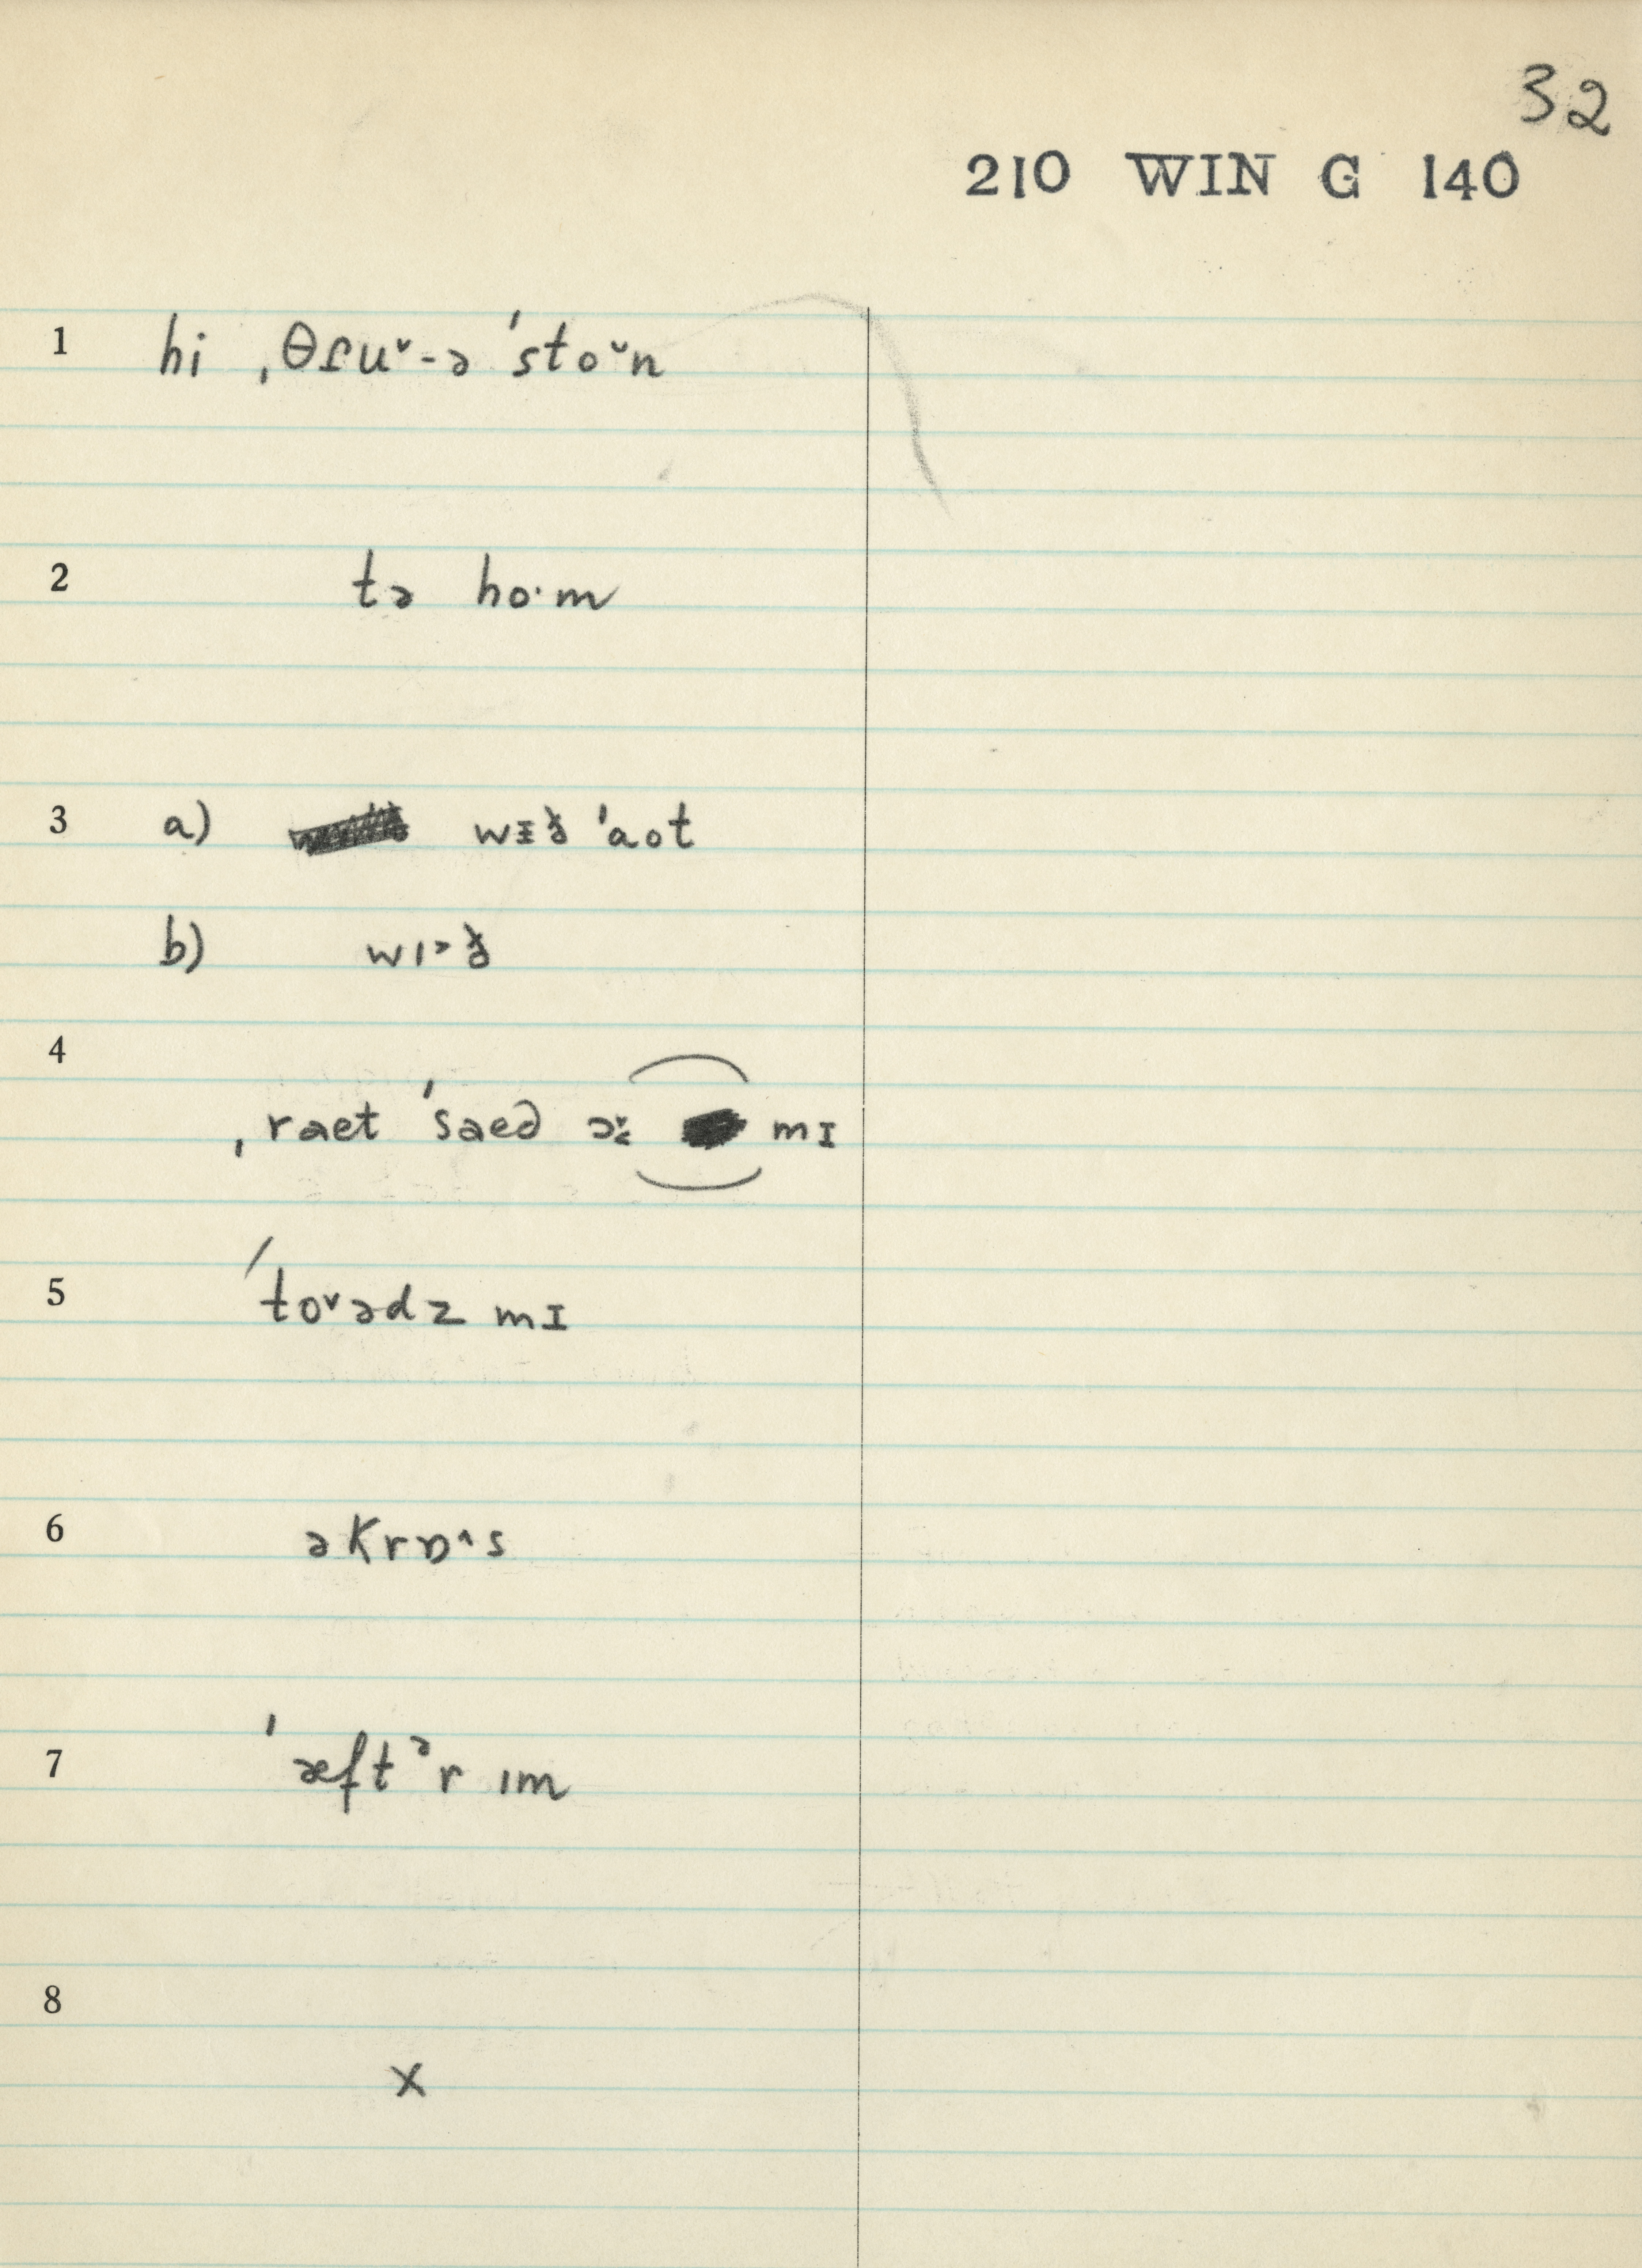 32
210 WIN G 140
1 hi ˌθɾu˅-ə ˈsto˅n
2 tə ho·m
3 a) wɪð ˈaot
b) wɪ˃ð
4 ˌraet ˈsaed ə mɪ
5 ˈto˅ədz mɪ
6 əkrɒ˄s
7 ˈæftᵊr ɪm
8 x